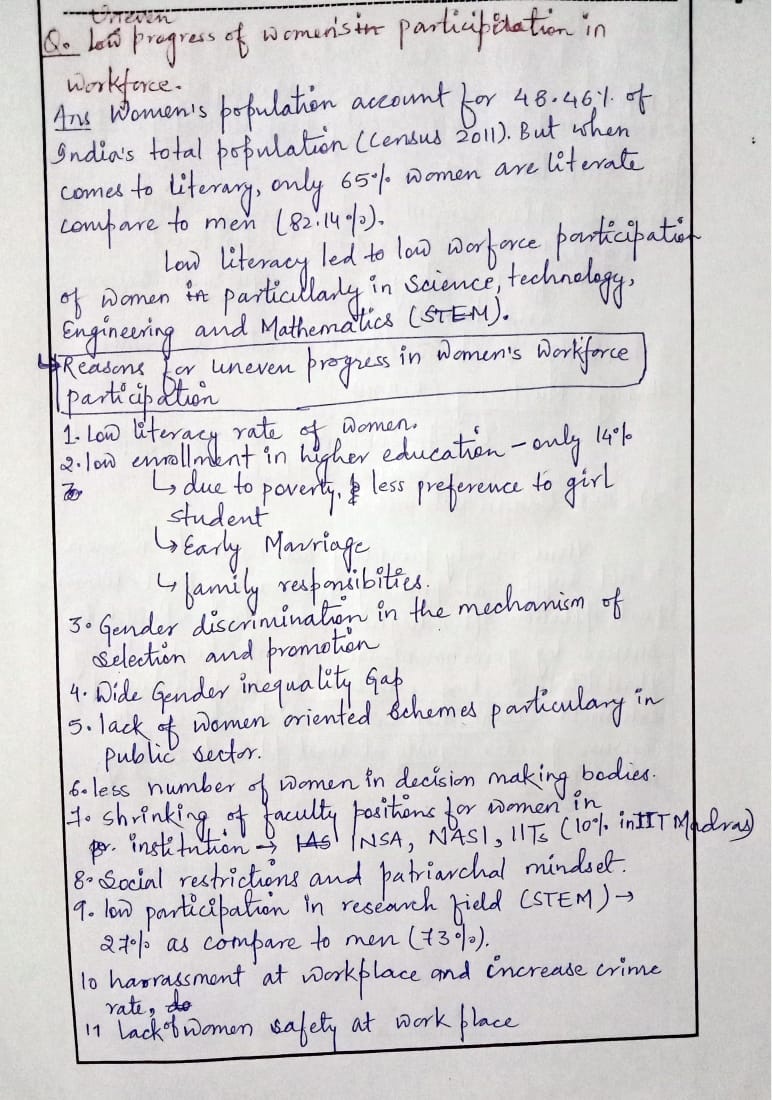 Uneven
Q. Low progress of women's in participation in
workforce.
Ans Women's population account for 48.46% of
India's total population (Census 2011). But when
comes to literary, only 65% women are literate
compare to men (82.14%).
Low literacy led to low worforce participation
of women in particullarly in Science, technology,
Engineering and Mathematics (STEM).
↳Reasons for uneven progress in Women's Workforce
participation
1. Low literacy rate of women.
2. low enrollment in higher education - only 14%
3.
↳ due to poverty, & less preference to girl
student
↳ Early Marriage
↳ family responsibities.
3. Gender discrimination in the mechanism of
selection and promotion
4. Wide Gender inequality Gap
5. lack of women oriented schemes particulary in
public sector.
6. less number of women in decision making bodies.
7. shrinking of faculty positions for women in
pr. institution → IAS INSA, NASI, IITs (10% in IIT Madras)
8. Social restrictions and patriarchal mindset.
9. low participation in research field (STEM) →
27% as compare to men (73%).
10 harrassment at workplace and increase crime
rate, do
11 Lack of women safety at work place